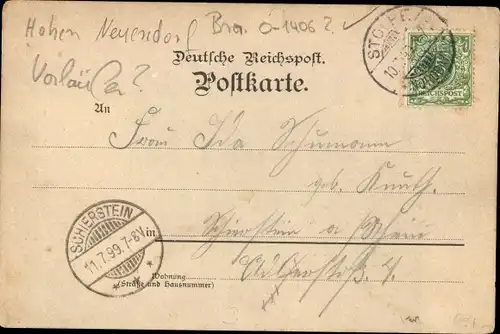 Hohen Neuendorf Bra. O-1406?
Vorläufer?
Deutsche Reichspost.
Postkarte.
STOLPE
10.
REICHSPOST
An
Frau Ida Schumann
geb. Knuth.
Schierstein a Rhein
in
Wohnung
(Straße und Hausnummer)
SCHIERSTEIN
11.7.99.7-8V.